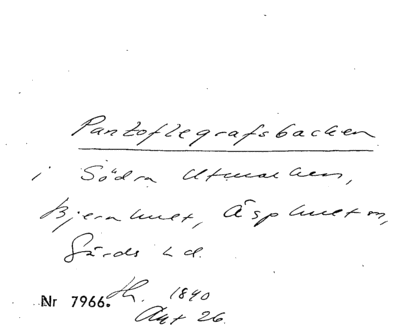 Pantoflegrafsbacken
i Södra Utmarken,
Bjernhult, Äsphults sn,
Gärds hd.
Nr 7966. 1840
Akt 26.